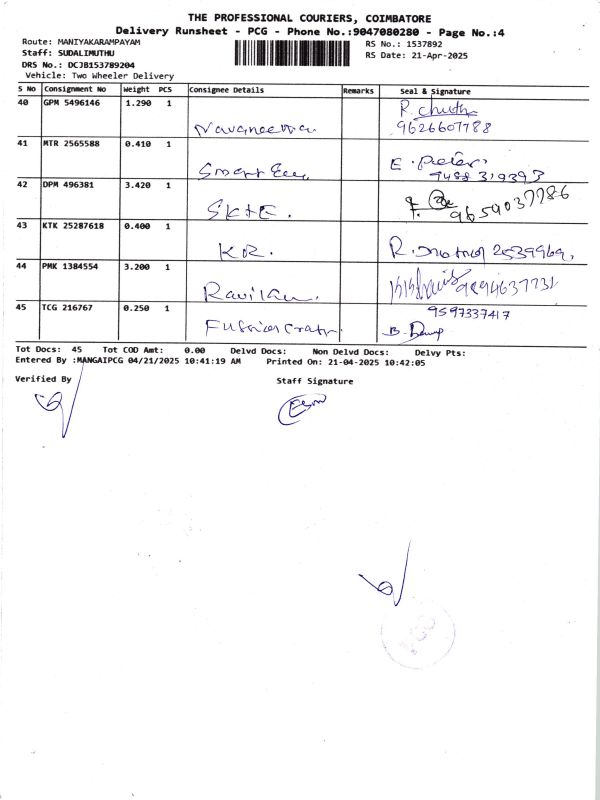 THE PROFESSIONAL COURIERS, COIMBATORE
Delivery Runsheet - PCG - Phone No.:9047080280 - Page No.:4
Route: MANIYAKARAMPAYAM
RS No.: 1537892
Staff: SUDALIMUTHU
RS Date: 21-Apr-2025
DRS No.: DCJB153789204
Vehicle: Two Wheeler Delivery
S No Consignment No Weight PCS Consignee Details Remarks Seal & Signature
40 GPM 5496146 1.290 1
9626607788
41 MTR 2565588 0.410 1 E. Peter
9488319393
42 DPM 496381 3.420 1 SKTE. 9659037786
43 KTK 25287618 0.400 1 KR. 2539969,
44 PMK 1384554 3.200 1 9894637731
45 TCG 216767 0.250 1 9597337417
Tot Docs: 45 Tot COD Amt: 0.00 Delvd Docs: Non Delvd Docs: Delvy Pts:
Entered By :MANGAIPCG 04/21/2025 10:41:19 AM Printed On: 21-04-2025 10:42:05
Verified By Staff Signature
PCG